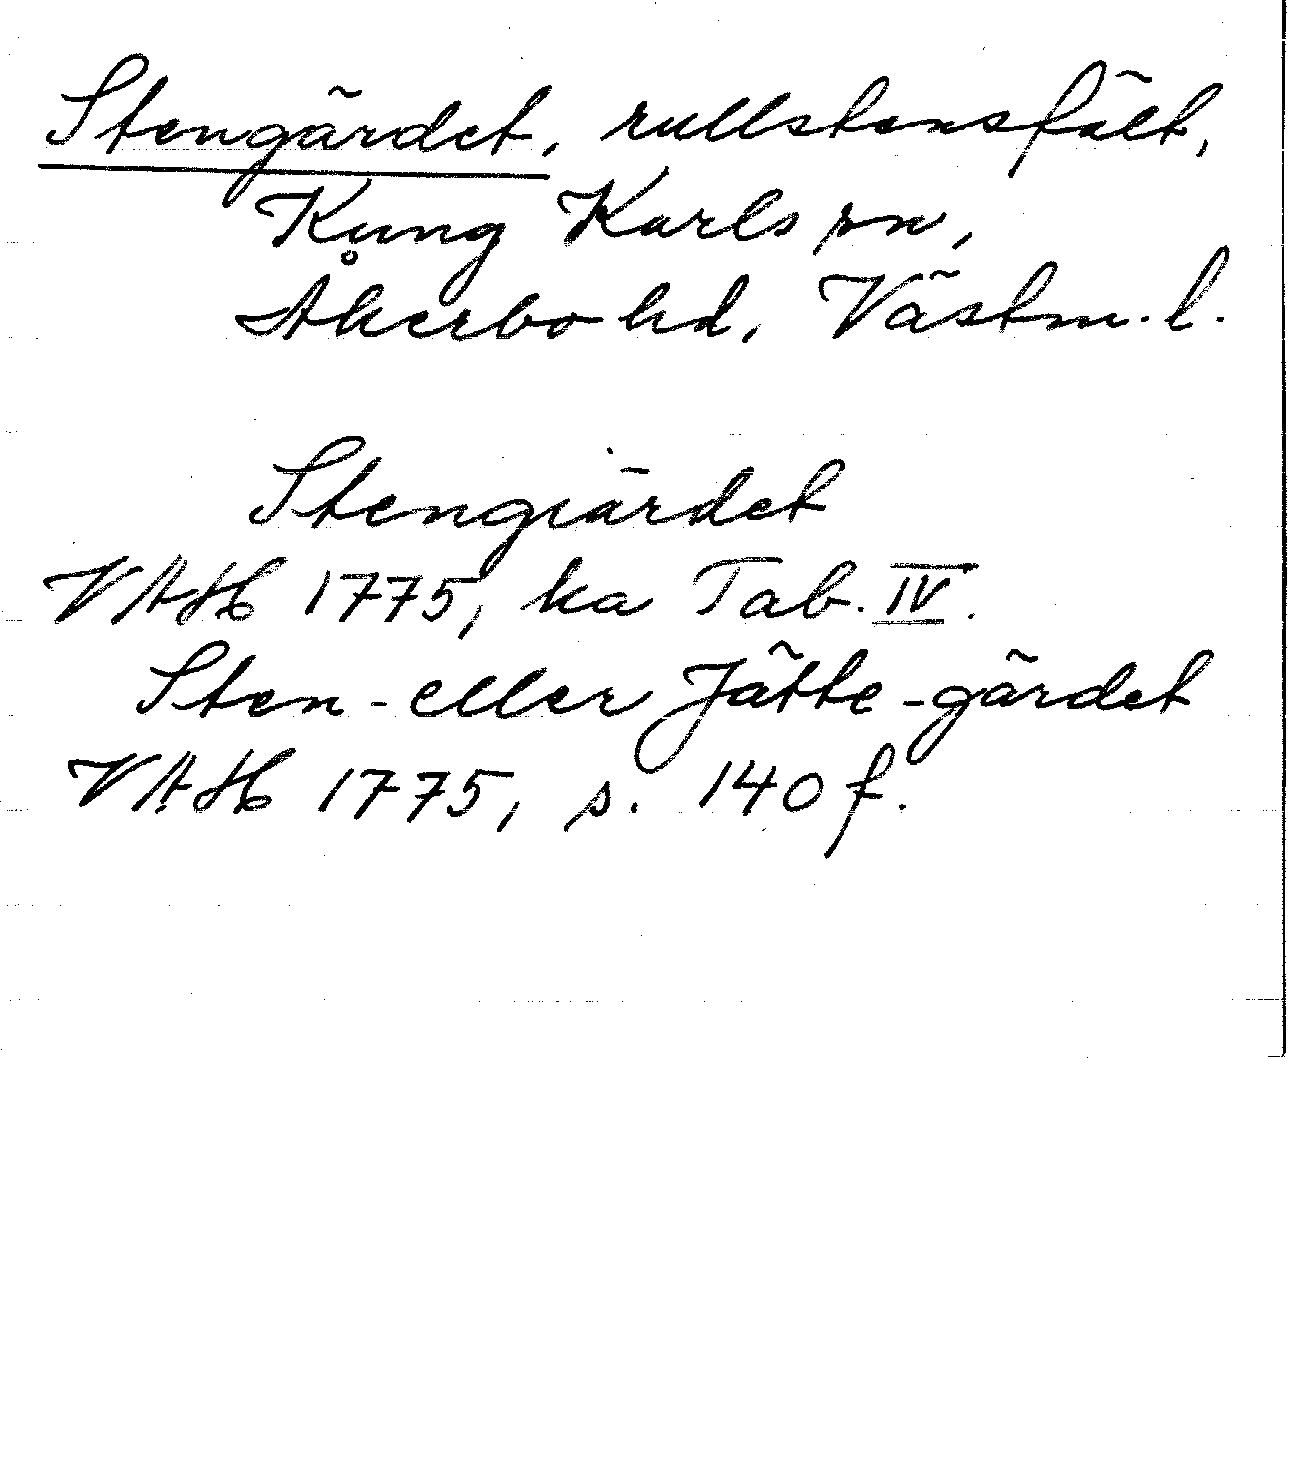 Stengärdet, rullstensfält,
Kung Karls sn,
Åkerbo hd, Västm. l.
Stengiärdet
VAH 1775, ka Tab. IV.
Sten- eller Jätte-gärdet
VAH 1775, s. 140 f.